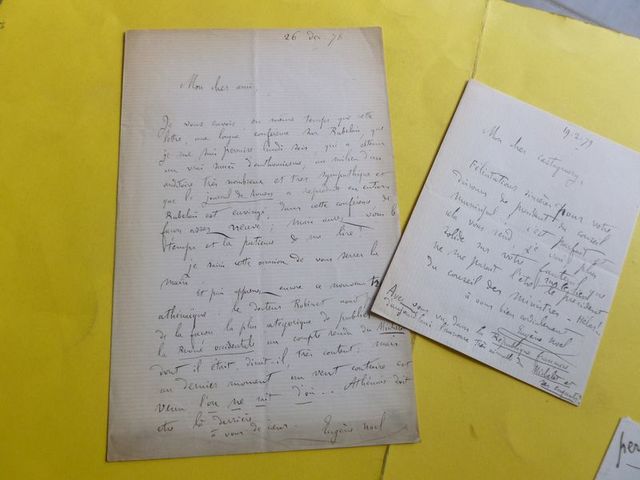 26 Déc. 78
Mon cher ami,
Je vous envoie en même temps que cette
lettre, une longue conférence sur Rabelais, que
je me suis permise lundi soir, qui a obtenu
un vrai succès d'enthousiasme, au milieu d'un
auditoire très nombreux et très sympathique et
que le Journal de Rouen a reproduit en entier.
Rabelais est envisagé, dans cette conférence de
façon assez neuve; mais aurez vous le
temps et la patience de me lire?
Je saisis cette occasion de vous serrer la
main
et puis encore ce nouveau
le docteur Robinet nous
de la façon la plus catégorique de publier
la Revue occidentale un compte rendu du Michelet
dont il était disait-il, très content; mais
au dernier moment un vent contraire est
venu l'on ne sait d'où... doit
être là derrière.
à vous de cœur. Eugène Noel
19-2-79
Mon cher Castagnary,
Félicitations sincères pour votre
discours de président du conseil
municipal, c'est parfait et
cela vous rend plus
solide sur votre fauteuil
ne me paraît l'être le président
du conseil des ministres - Hélas!
à vous bien cordialement
Eugène Noel
Avez vous vu dans la République française
d'aujourd'hui Michelet et
ses enfants
per